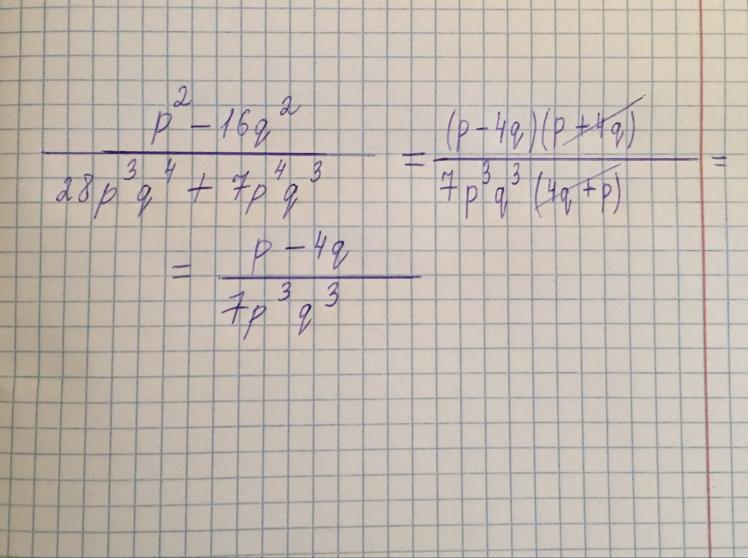 p² − 16q² / 28p³q⁴ + 7p⁴q³ = (p − 4q)(p + 4q) / 7p³q³ (4q + p) =
= p − 4q / 7p³q³